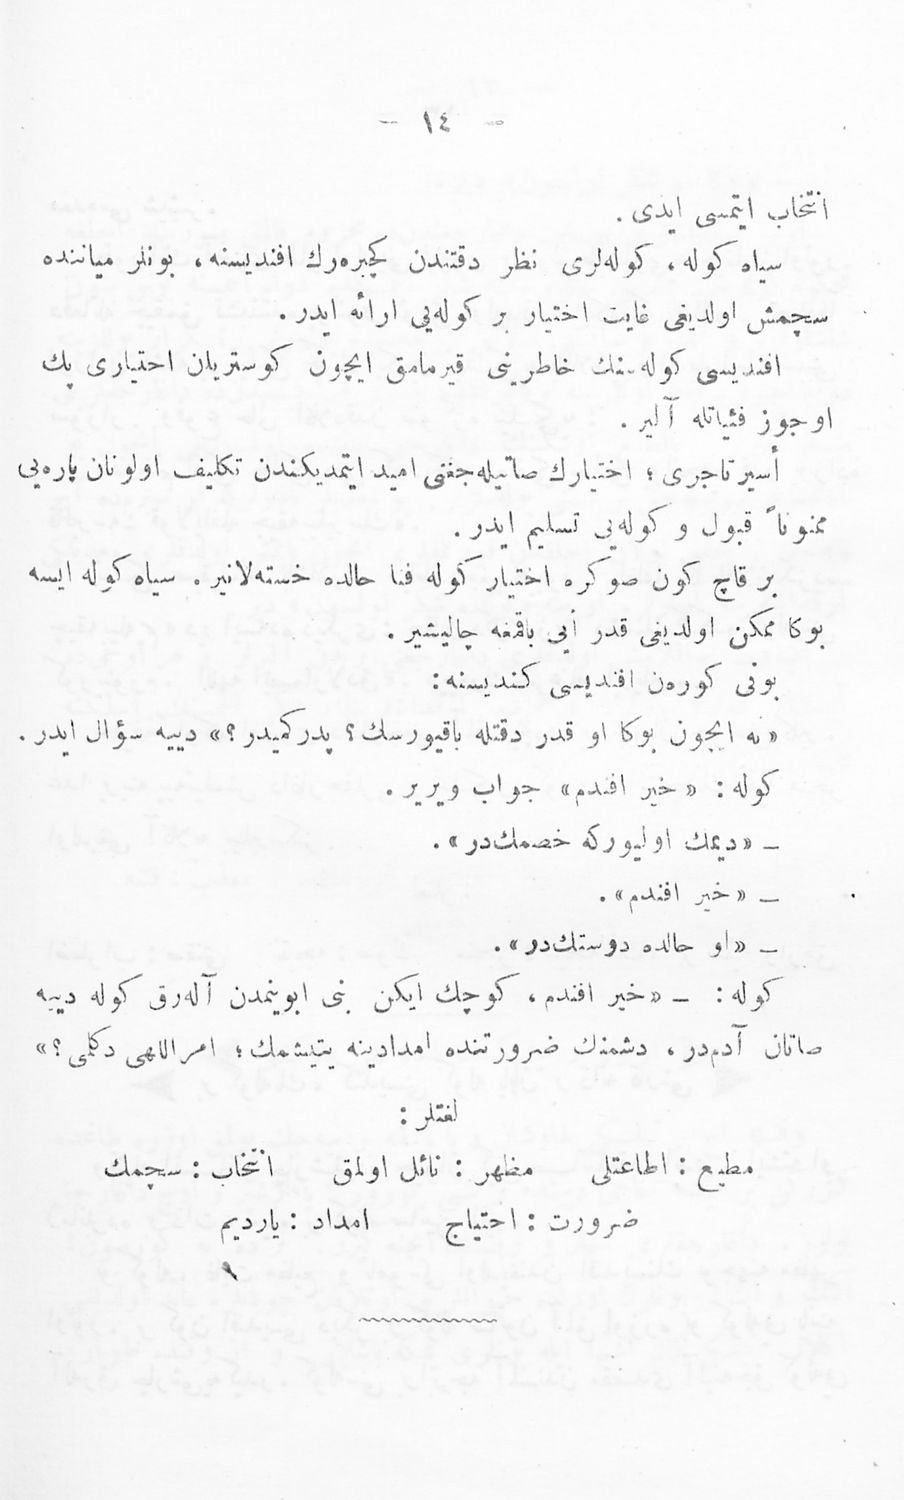 - ١٤ -
انتخاب ایتمسی ایدی .
سیاه كوله، كوله‌لری نظر دقتندن كچیره‌رك افندیسنه، بونلر میاننده
سچمش اولدیغی غایت اختیار بر كوله‌یی ارائه ایدر .
افندیسی كوله‌سنك خاطرینی قیرمامق ایچون كوستریلان اختیاری پك
اوجوز فئیاتله آلیر .
أسیر تاجری ؛ اختیارك صاتیله‌جغنی امید ایتمدیكندن تكلیف اولونان پاره‌یی
ممنوناً قبول و كوله‌یی تسلیم ایدر .
بر قاچ كون صوكره اختیار كوله فنا حالده خسته‌لانیر . سیاه كوله ایسه
بوكا ممكن اولدیغی قدر أیی باقمغه چالیشیر .
بونی كوره‌ن افندیسی كندیسنه :
« نه ایچون بوكا او قدر دقتله باقیورسك ؟ پدركمیدر ؟ » دییه سؤال ایدر .
كوله : « خیر افندم » جواب ویریر .
ـ « دیمك اولیوركه خصمك‌در » .
ـ « خیر افندم » .
ـ « او حالده دوستك‌در » .
كوله : ـ « خیر افندم ، كوچك ایكن بنی ابوینمدن آله‌رق كوله دییه
صاتان آدم‌در ، دشمنك ضرورتنده امدادینه یتیشمك ؛ امراللهی دكلمی ؟ »
لغتلر :
مطیع : اطاعتلی مظهر : نائل اولمق انتخاب : سچمك
ضرورت : احتیاج امداد : یاردیم